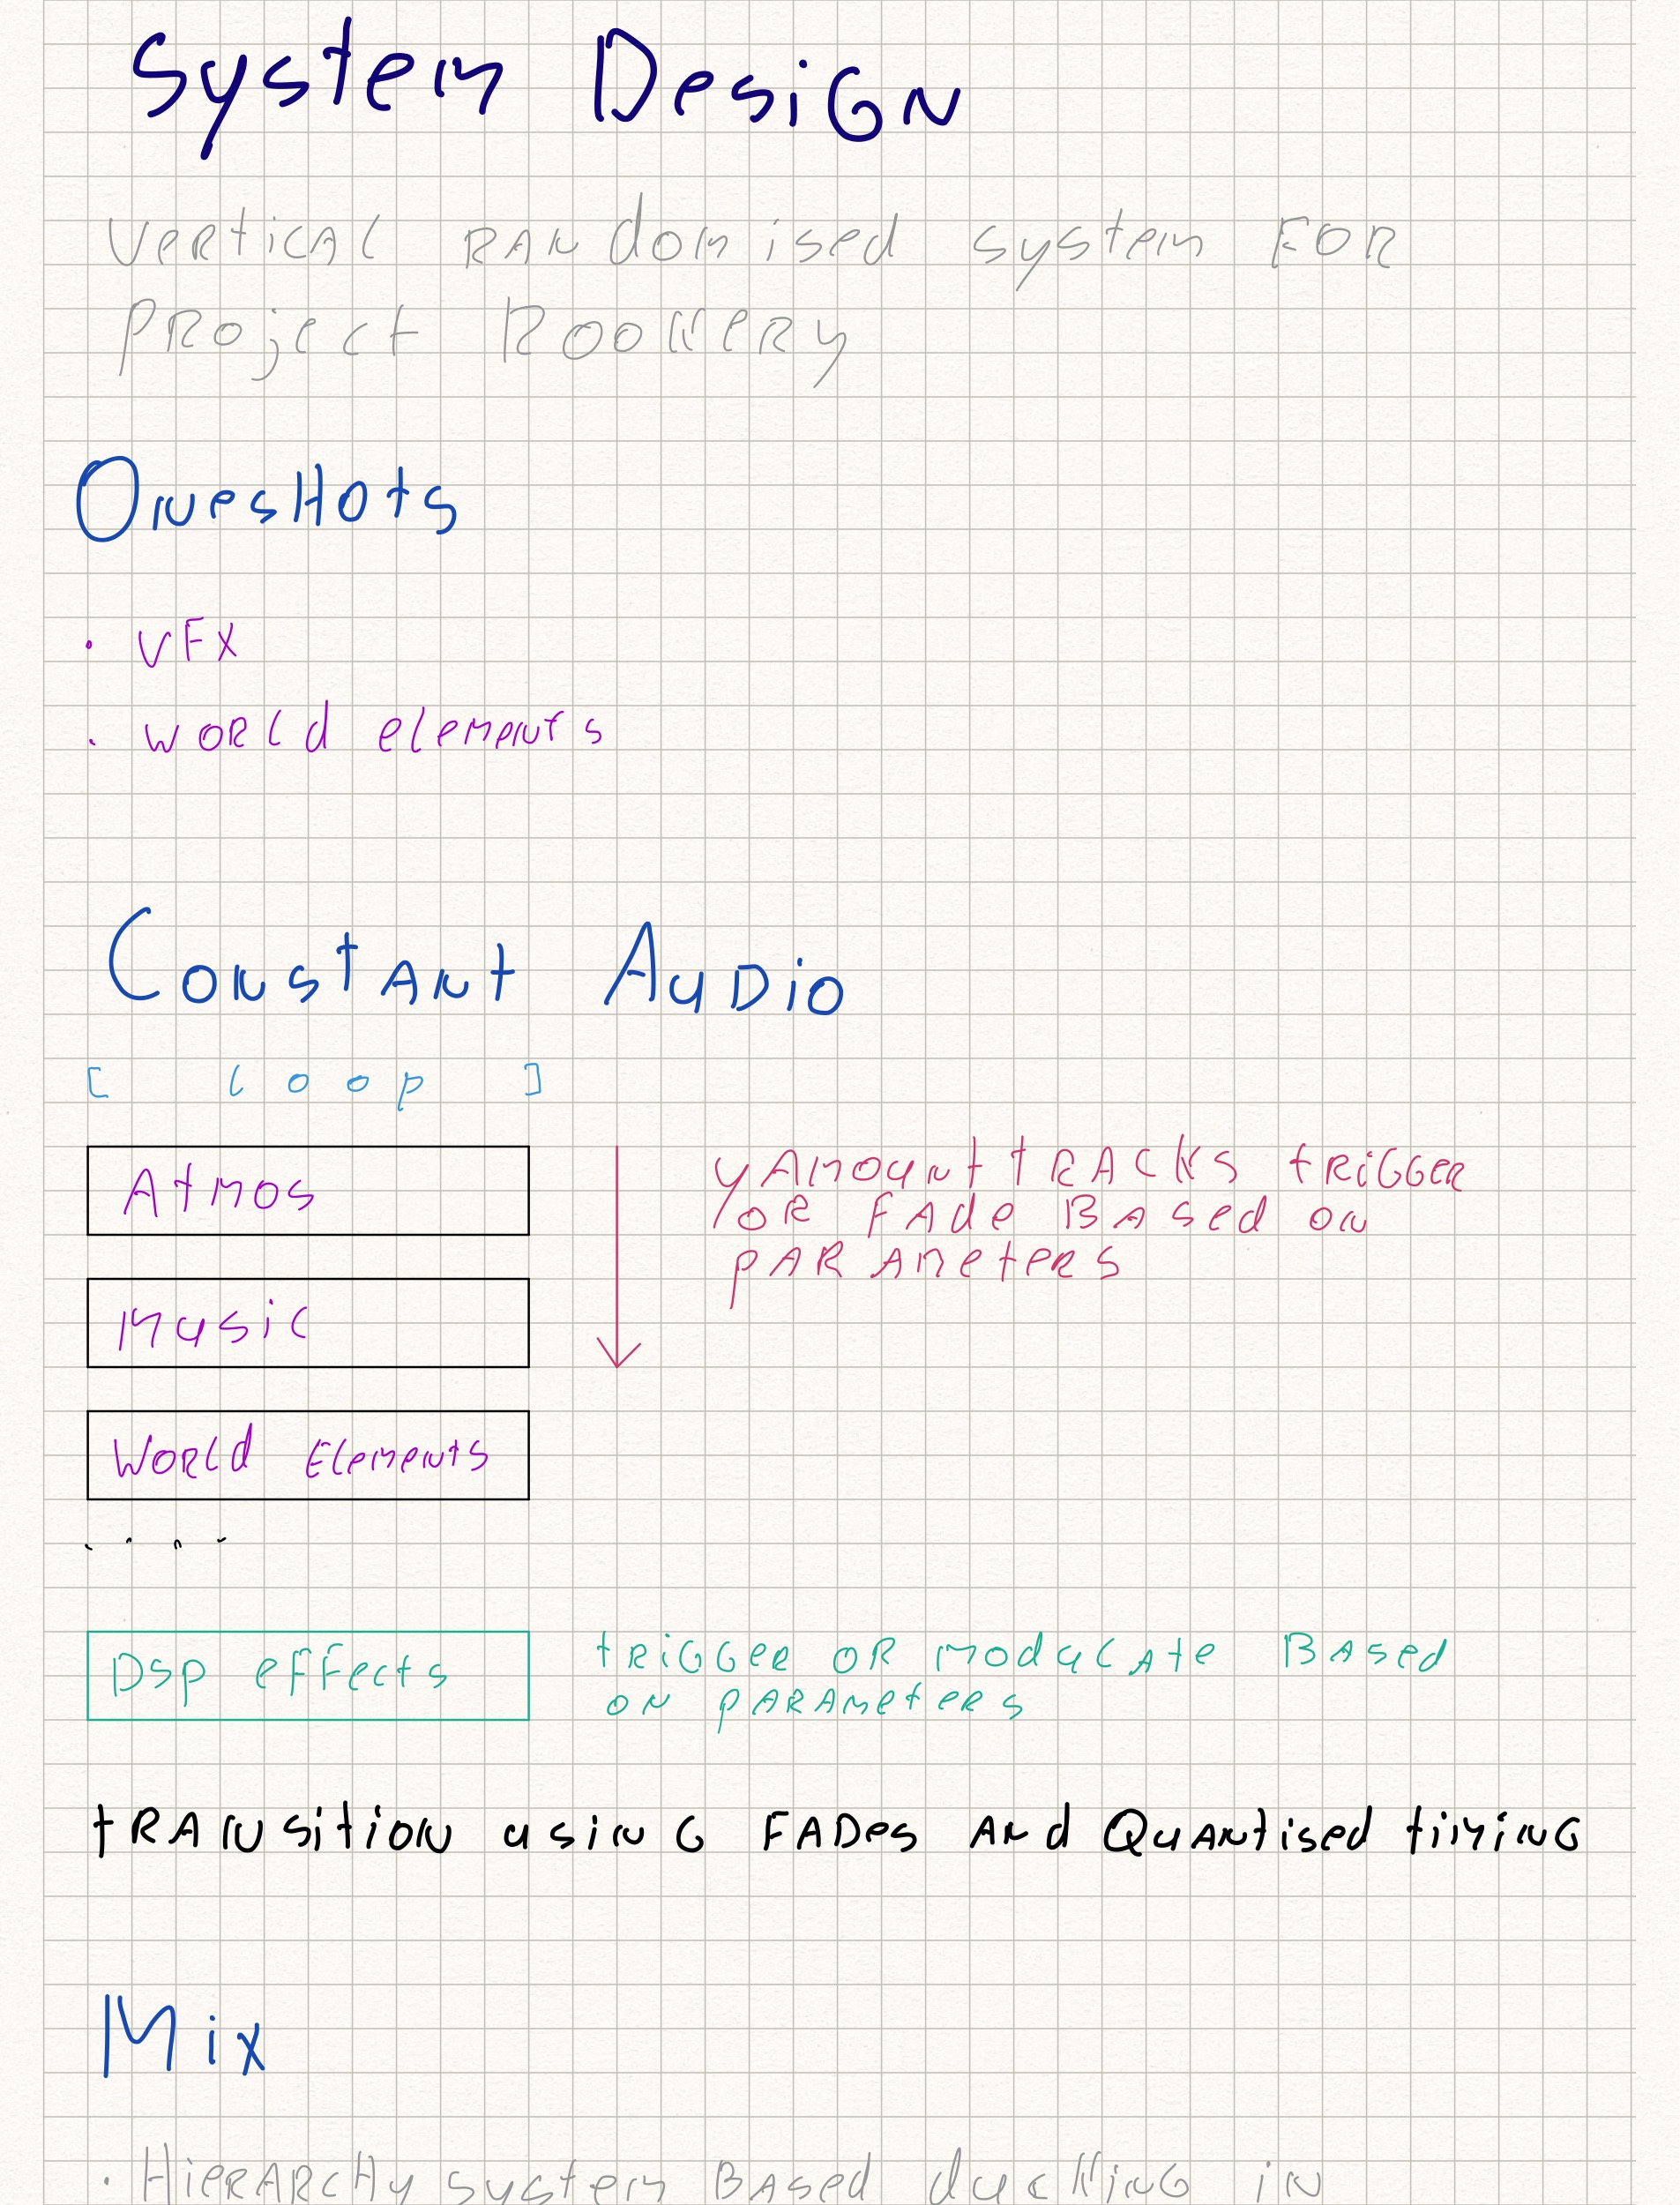 System Design
Vertical randomised system for
Project Rookery
Oneshots
• VFX
• World elements
Constant Audio
[ loop ]
Atmos
y Amount tracks trigger
or fade based on
parameters
Music
World Elements
....
Dsp effects
trigger or modulate based
on parameters
transition using fades and Quantised timing
Mix
• Hierarchy system based ducking in